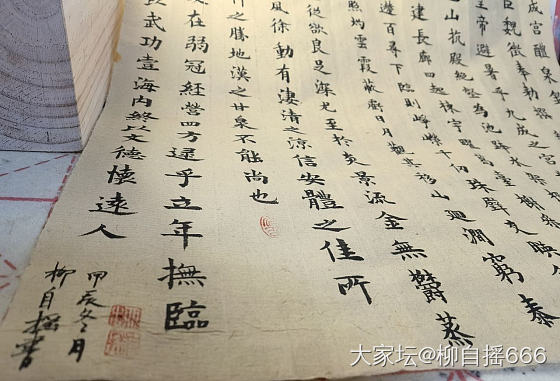 成宮醴泉
臣魏徵奉勅撰
帝避暑乎九成之
山抗殿絕壑為池跨水架
建長廊四起棟宇膠葛臺榭
遰百尋下臨則崢嶸千仞珠璧交映
照灼雲霞蔽虧日月觀其移山迴澗窮泰
從欲良足深尤至於炎景流金無鬱蒸
風徐動有淒清之涼信安體之佳所
之勝地漢之甘泉不能尚也
在弱冠經營四方逮乎立年撫臨
以武功壹海內終以文德懷遠人
甲辰冬月
柳自搖書
大家坛@柳自摇666